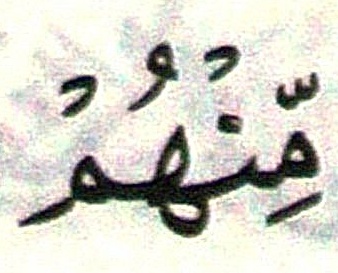 مِّنْهُمْ